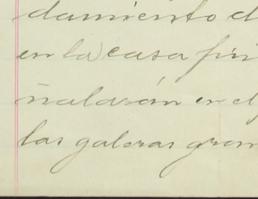 damiento d
en la casa fin
ñalarán en el
las galeras gran